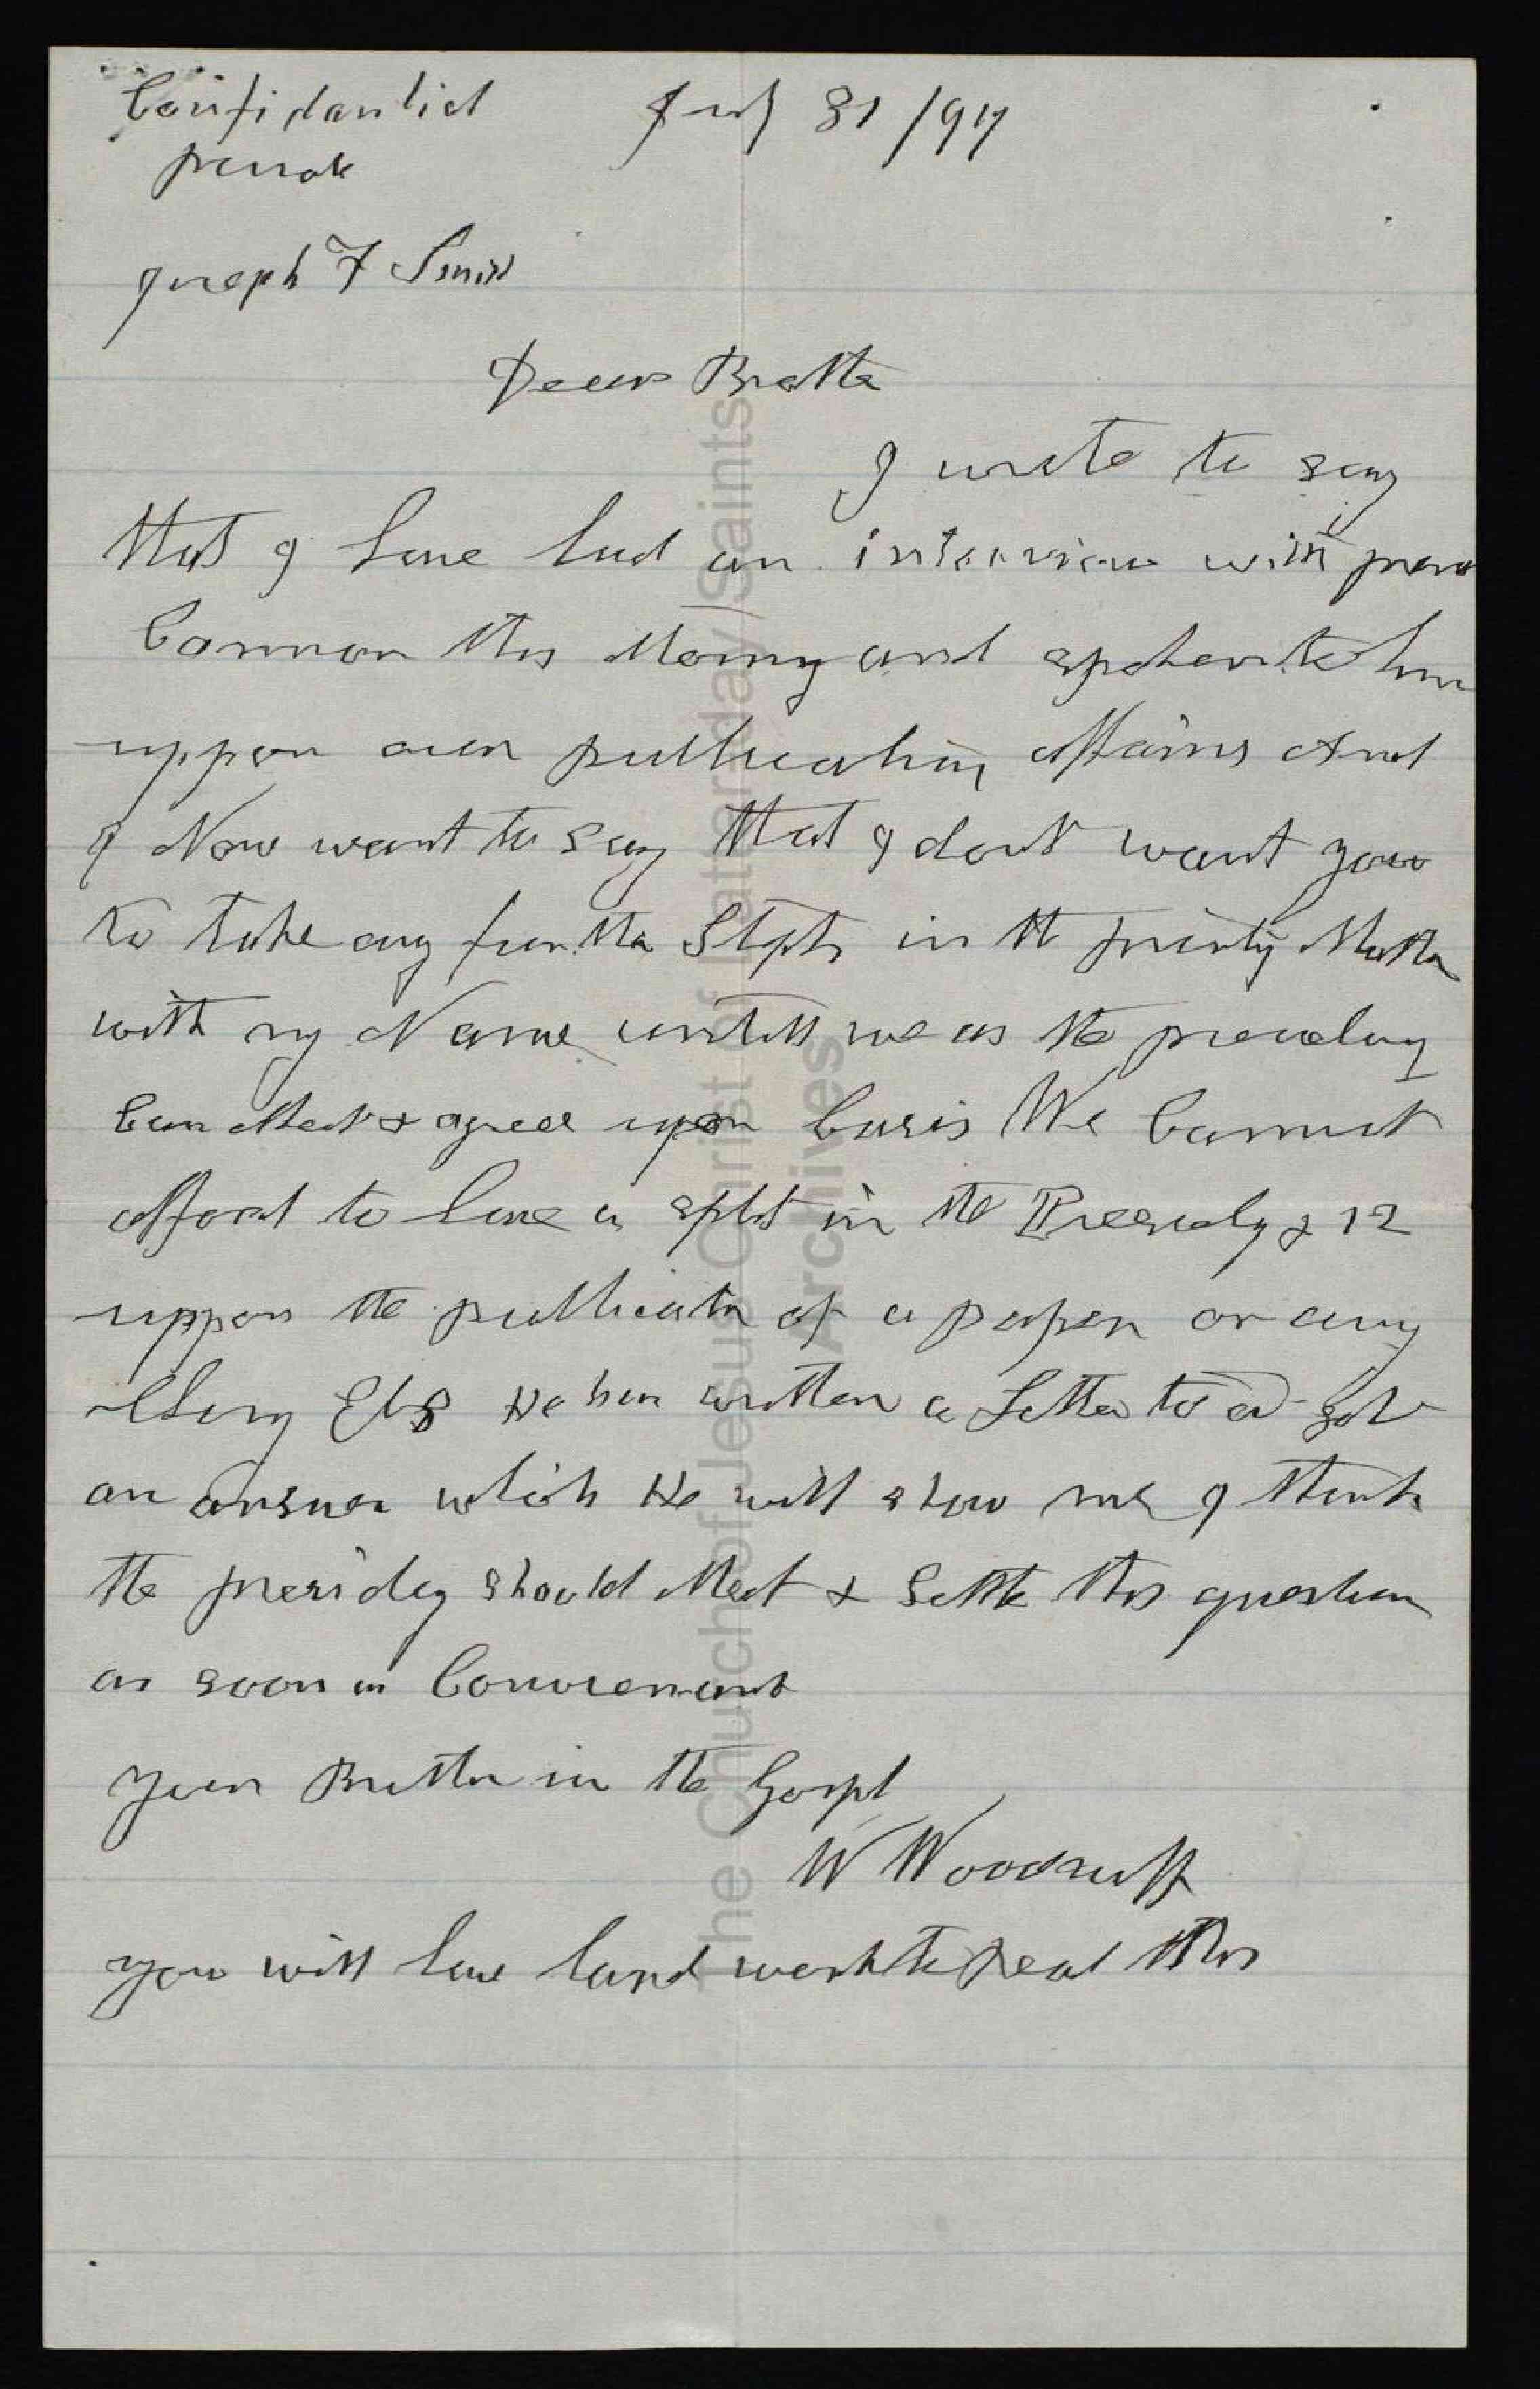 Confidantial July 31 /97
private
Joseph F Smith
Dear Brother
I write to say
that I have had an interview with
Cannon this Morning and spoken to him
uppon our publication Affairs And
I Now want to say that I dont want you
to take any further Steps in the printing Matter
with my Name untill we as the presidency
Can Meet & agree upon basis We Cannot
afford to have a split in the Presidency & 12
uppon the publicatn of a paper or any
thing Els He has written a Letter to & got
an answer which He will show me I think
the presidecy should Meet & Settle this question
as soon as Convenient
Your Brother in the Gospel
W Woodruff
you will have hard work to read this
The Church of Jesus Christ of Latter-day Saints
Archives